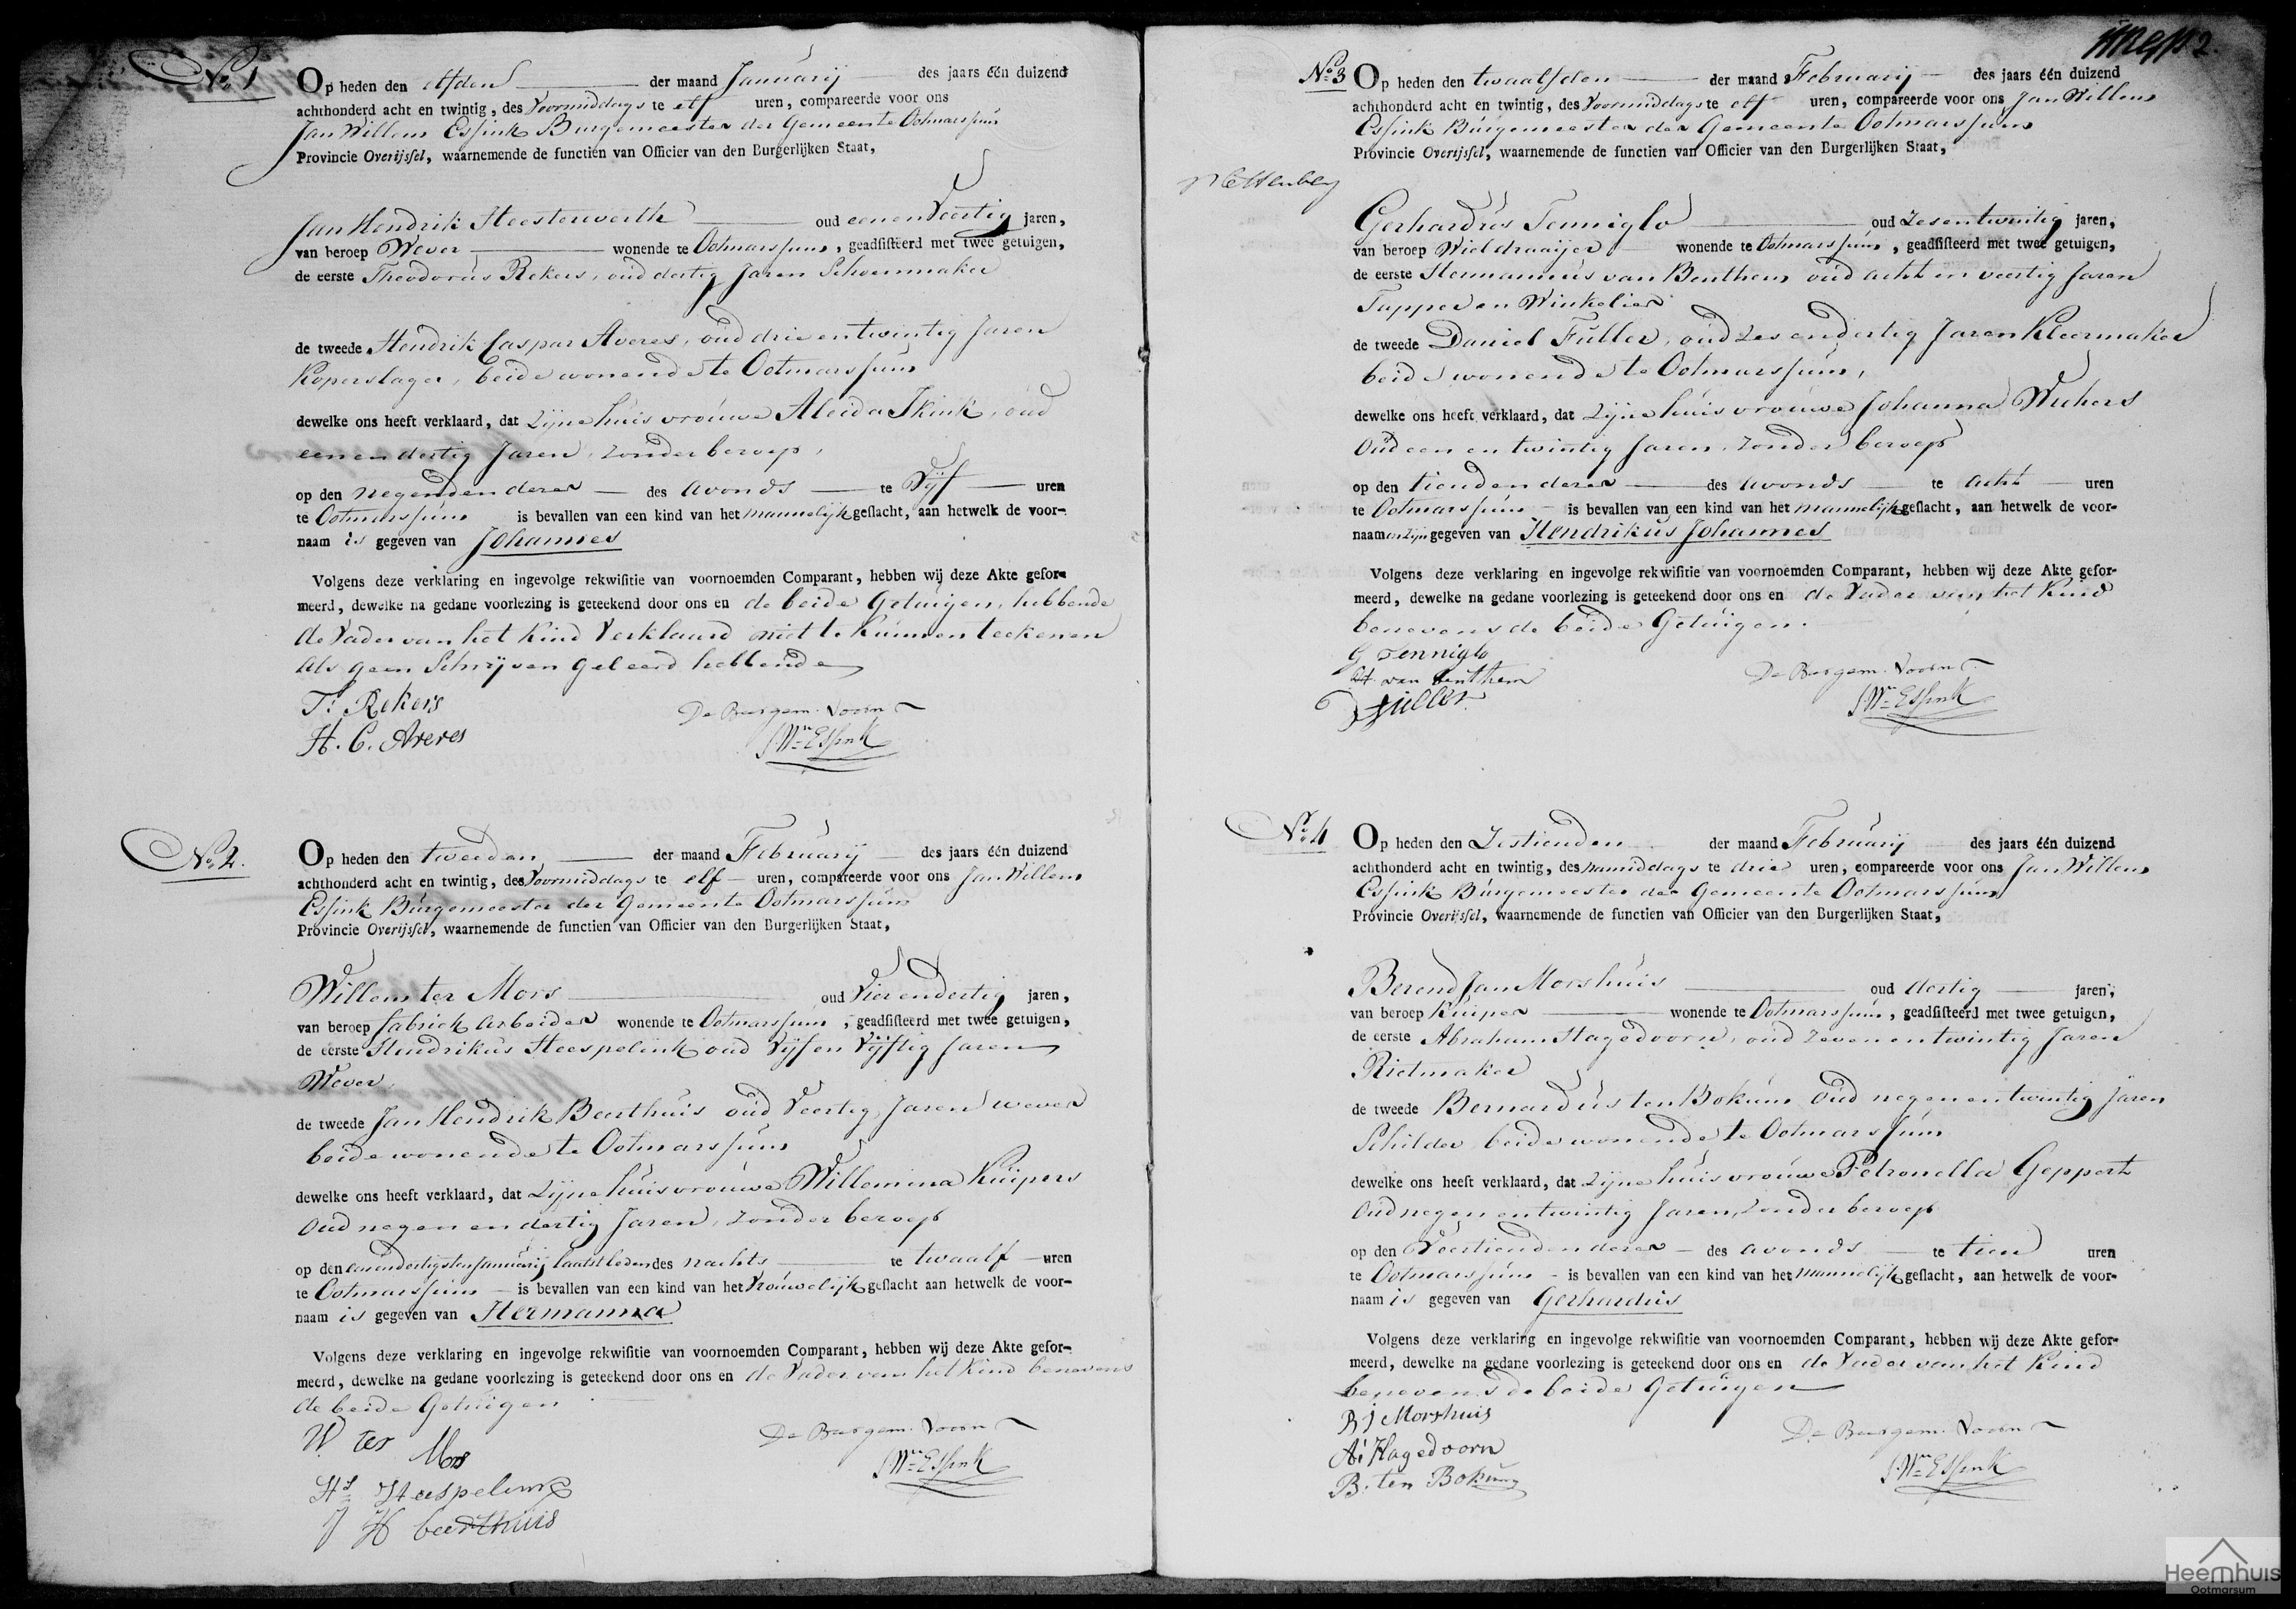 No 1
Op heden den elfden der maand Januarij des jaars één duizend
achthonderd acht en twintig, des Voormiddags te elf uren, compareerde voor ons
Jan Willem Essink Burgemeester der Gemeente Ootmarssum
Provincie Overijssel, waarnemende de functien van Officier van den Burgerlijken Staat,
Jan Hendrik Heesterwerth oud eenenVeertig jaren,
van beroep Wever wonende te Ootmarssum, geadsisteerd met twee getuigen,
de eerste Theodorus Rekers, oud dertig Jaren Schoenmaker
de tweede Hendrik Caspar Averes, oud drie en twintig Jaren
Koperslager, beide wonende te Ootmarssum
dewelke ons heeft verklaard, dat Zijne huisvrouwe Aleida Ikink, oud
een en dertig Jaren, zonder beroep,
op den negenden dezer des avonds te Vijf uren
te Ootmarssum is bevallen van een kind van het mannelijk geslacht, aan hetwelk de voor-
naam is gegeven van Johannes
Volgens deze verklaring en ingevolge rekwisitie van voornoemden Comparant, hebben wij deze Akte gefor-
meerd, dewelke na gedane voorlezing is geteekend door ons en de beide Getuigen, hebbende
de Vader van het Kind Verklaard niet te kunnen teekenen
als geen Schrijven geleerd hebbende
T. Rekers
H. C. Averes
De Burgem. Voorn
J Wm Essink
No 2.
Op heden den tweeden der maand Februarij des jaars één duizend
achthonderd acht en twintig, des Voormiddags te elf uren, compareerde voor ons Jan Willem
Essink Burgemeester der Gemeente Ootmarssum
Provincie Overijssel, waarnemende de functien van Officier van den Burgerlijken Staat,
Willem ter Mors oud Vierendertig jaren,
van beroep fabriek arbeider wonende te Ootmarssum, geadsisteerd met twee getuigen,
de eerste Hendrikus Heespelink oud Vijf en Vijftig Jaren
Wever
de tweede Jan Hendrik Beerthuis oud Veertig Jaren wever
beide wonende te Ootmarssum
dewelke ons heeft verklaard, dat Zijne huisvrouwe Willemina Kuipers
Oud negen en dertig Jaren, zonder beroep
op den eenendertigsten Januarij laatstleden des nachts te twaalf uren
te Ootmarssum is bevallen van een kind van het Vrouwelijk geslacht aan hetwelk de voor-
naam is gegeven van Hermanna
Volgens deze verklaring en ingevolge rekwisitie van voornoemden Comparant, hebben wij deze Akte gefor-
meerd, dewelke na gedane voorlezing is geteekend door ons en de Vader van het Kind benevens
de beide Getuigen
W ter Mors
Hs Heespelink
J H beerthuis
De Burgem. Voorn
J Wm Essink
2.
No 3 Op heden den twaalfden der maand Februarij des jaars één duizend
achthonderd acht en twintig, des Voormiddags te elf uren, compareerde voor ons Jan Willem
Essink Burgemeester der Gemeente Ootmarssum
Provincie Overijssel, waarnemende de functien van Officier van den Burgerlijken Staat,
Gerhardus Tenniglo oud Zesentwintig jaren,
van beroep Wieldraaijer wonende te Ootmarssum, geadsisteerd met twee getuigen,
de eerste Hermannus van Benthem oud acht en veertig Jaren
Tapper en Winkelier
de tweede Daniel Fuller, oud zes en dertig Jaren Kleermaker
beide wonende te Ootmarssum,
dewelke ons heeft verklaard, dat Zijne huisvrouwe Johanna
Oud een en twintig Jaren, zonder beroep
op den tienden dezer des avonds te acht uren
te Ootmarssum is bevallen van een kind van het mannelijk geslacht, aan hetwelk de voor-
naamen zijn gegeven van Hendrikus Johannes
Volgens deze verklaring en ingevolge rekwisitie van voornoemden Comparant, hebben wij deze Akte gefor-
meerd, dewelke na gedane voorlezing is geteekend door ons en de Vader van het Kind
benevens de beide Getuigen.
G Tenniglo
H. van benthem
D fuller
De Burgem. Voorn
J Wm Essink
No 4 Op heden den Zestienden der maand Februarij des jaars één duizend
achthonderd acht en twintig, des namiddags te drie uren, compareerde voor ons Jan Willem
Essink Burgemeester der Gemeente Ootmarssum
Provincie Overijssel, waarnemende de functien van Officier van den Burgerlijken Staat,
Berend Jan Morshuis oud dertig jaren,
van beroep Kuiper wonende te Ootmarssum, geadsisteerd met twee getuigen,
de eerste Abraham Hagedoorn, oud zeven en twintig Jaren
Rietmaker
de tweede Bernardus ten Bokum Oud negen en twintig Jaren
Schilder beide wonende te Ootmarssum
dewelke ons heeft verklaard, dat Zijne huisvrouwe Petronella Geppert
Oud negen en twintig Jaren, zonder beroep
op den Veertienden dezer des avonds te tien uren
te Ootmarssum is bevallen van een kind van het mannelijk geslacht, aan hetwelk de voor-
naam is gegeven van Gerhardus
Volgens deze verklaring en ingevolge rekwisitie van voornoemden Comparant, hebben wij deze Akte gefor-
meerd, dewelke na gedane voorlezing is geteekend door ons en de Vader van het Kind
benevens de beide Getuigen
B J Morshuis
A Hagedoorn
B. ten Bokum
De Burgem. Voorn
J. Wm Essink
Heemhuis
Ootmarsum